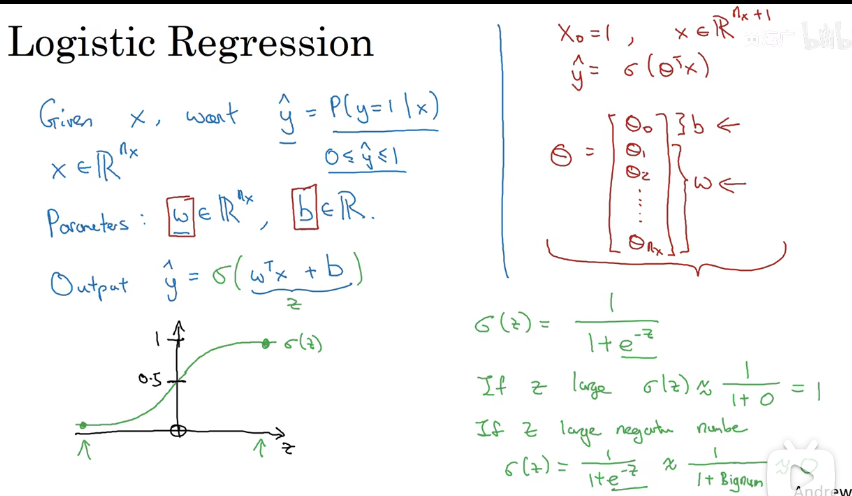 Logistic Regression
Given x, want ŷ = P(y=1|x)
x ∈ ℝ^{n_x}
0 ≤ ŷ ≤ 1
Parameters: w ∈ ℝ^{n_x}, b ∈ ℝ.
Output ŷ = σ(w^T x + b)
z
1
σ(z)
0.5
z
x_0 = 1, x ∈ ℝ^{n_x+1}
ŷ = σ(θ^T x)
θ = [θ_0 } b ←
θ_1
θ_2
⋮
θ_{n_x}] } w ←
σ(z) = 1/(1+e^{-z})
If z large σ(z) ≈ 1/(1+0) = 1
If z large negative number
σ(z) = 1/(1+e^{-z}) ≈ 1/(1+Bignum) ≈ 0
Andrew